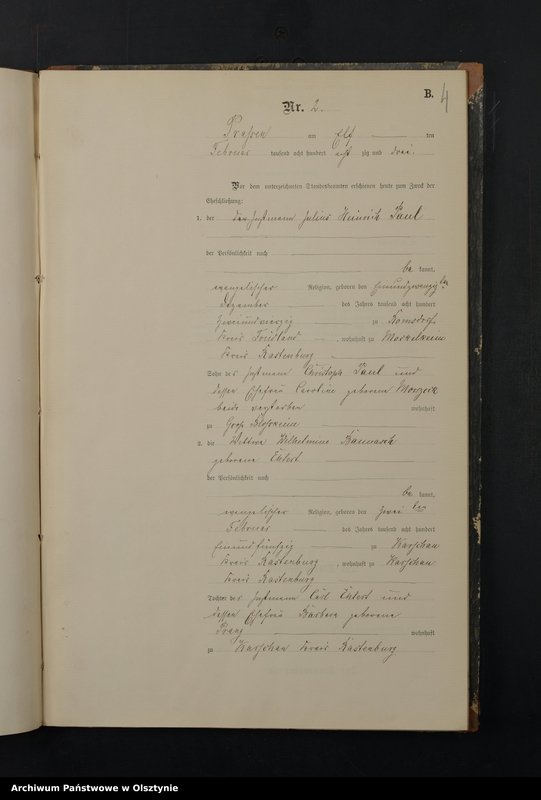 B.
4
Nr. 2.
am Elf ten
Februar tausend acht hundert acht zig und drei.
Vor dem unterzeichneten Standesbeamten erschienen heute zum Zweck der
Eheschließung:
1. der der Instmann Julius Heinrich Paul
der Persönlichkeit nach
be kannt,
evangelischer Religion, geboren den
Dezember des Jahres tausend acht hundert
zu
Kreis Friedland, wohnhaft zu
Kreis Rastenburg
Sohn des Instmann Christoph Paul und
dessen Ehefrau Caroline geborene
beide verstorben wohnhaft
zu Groß
2. die Wittwe Wilhelmine
geborene Ehlert
der Persönlichkeit nach
be kannt,
evangelischer Religion, geboren den zwei ten
Februar des Jahres tausend acht hundert
fünfzig zu Karschau
Kreis Rastenburg, wohnhaft zu Karschau
Kreis Rastenburg
Tochter des Instmann Carl Ehlert und
dessen Ehefrau Barbara geborene
wohnhaft
zu Karschau Kreis Rastenburg
Archiwum Państwowe w Olsztynie